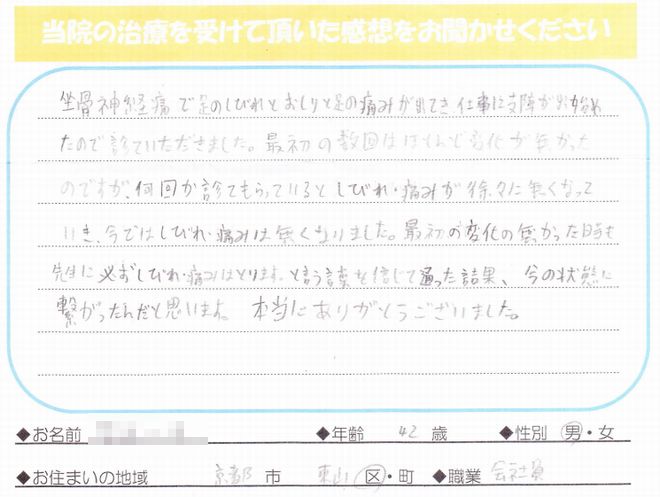 当院の治療を受けて頂いた感想をお聞かせください
坐骨神経痛で足のしびれとおしりと足の痛みが出てき、仕事に支障が出始め
たので診ていただきました。最初の数回はほとんど変化が無かった
のですが、何回か診てもらっているとしびれ・痛みが徐々に無くなって
いき、今ではしびれ・痛みは無くなりました。最初の変化の無かった時も
先生に必ずしびれ・痛みはとります。と言う言葉を信じて通った結果、今の状態に
繋がったんだと思います。本当にありがとうございました。
◆お名前 ◆年齢 42 歳 ◆性別 男・女
◆お住まいの地域 京都 市 東山 区・町 ◆職業 会社員